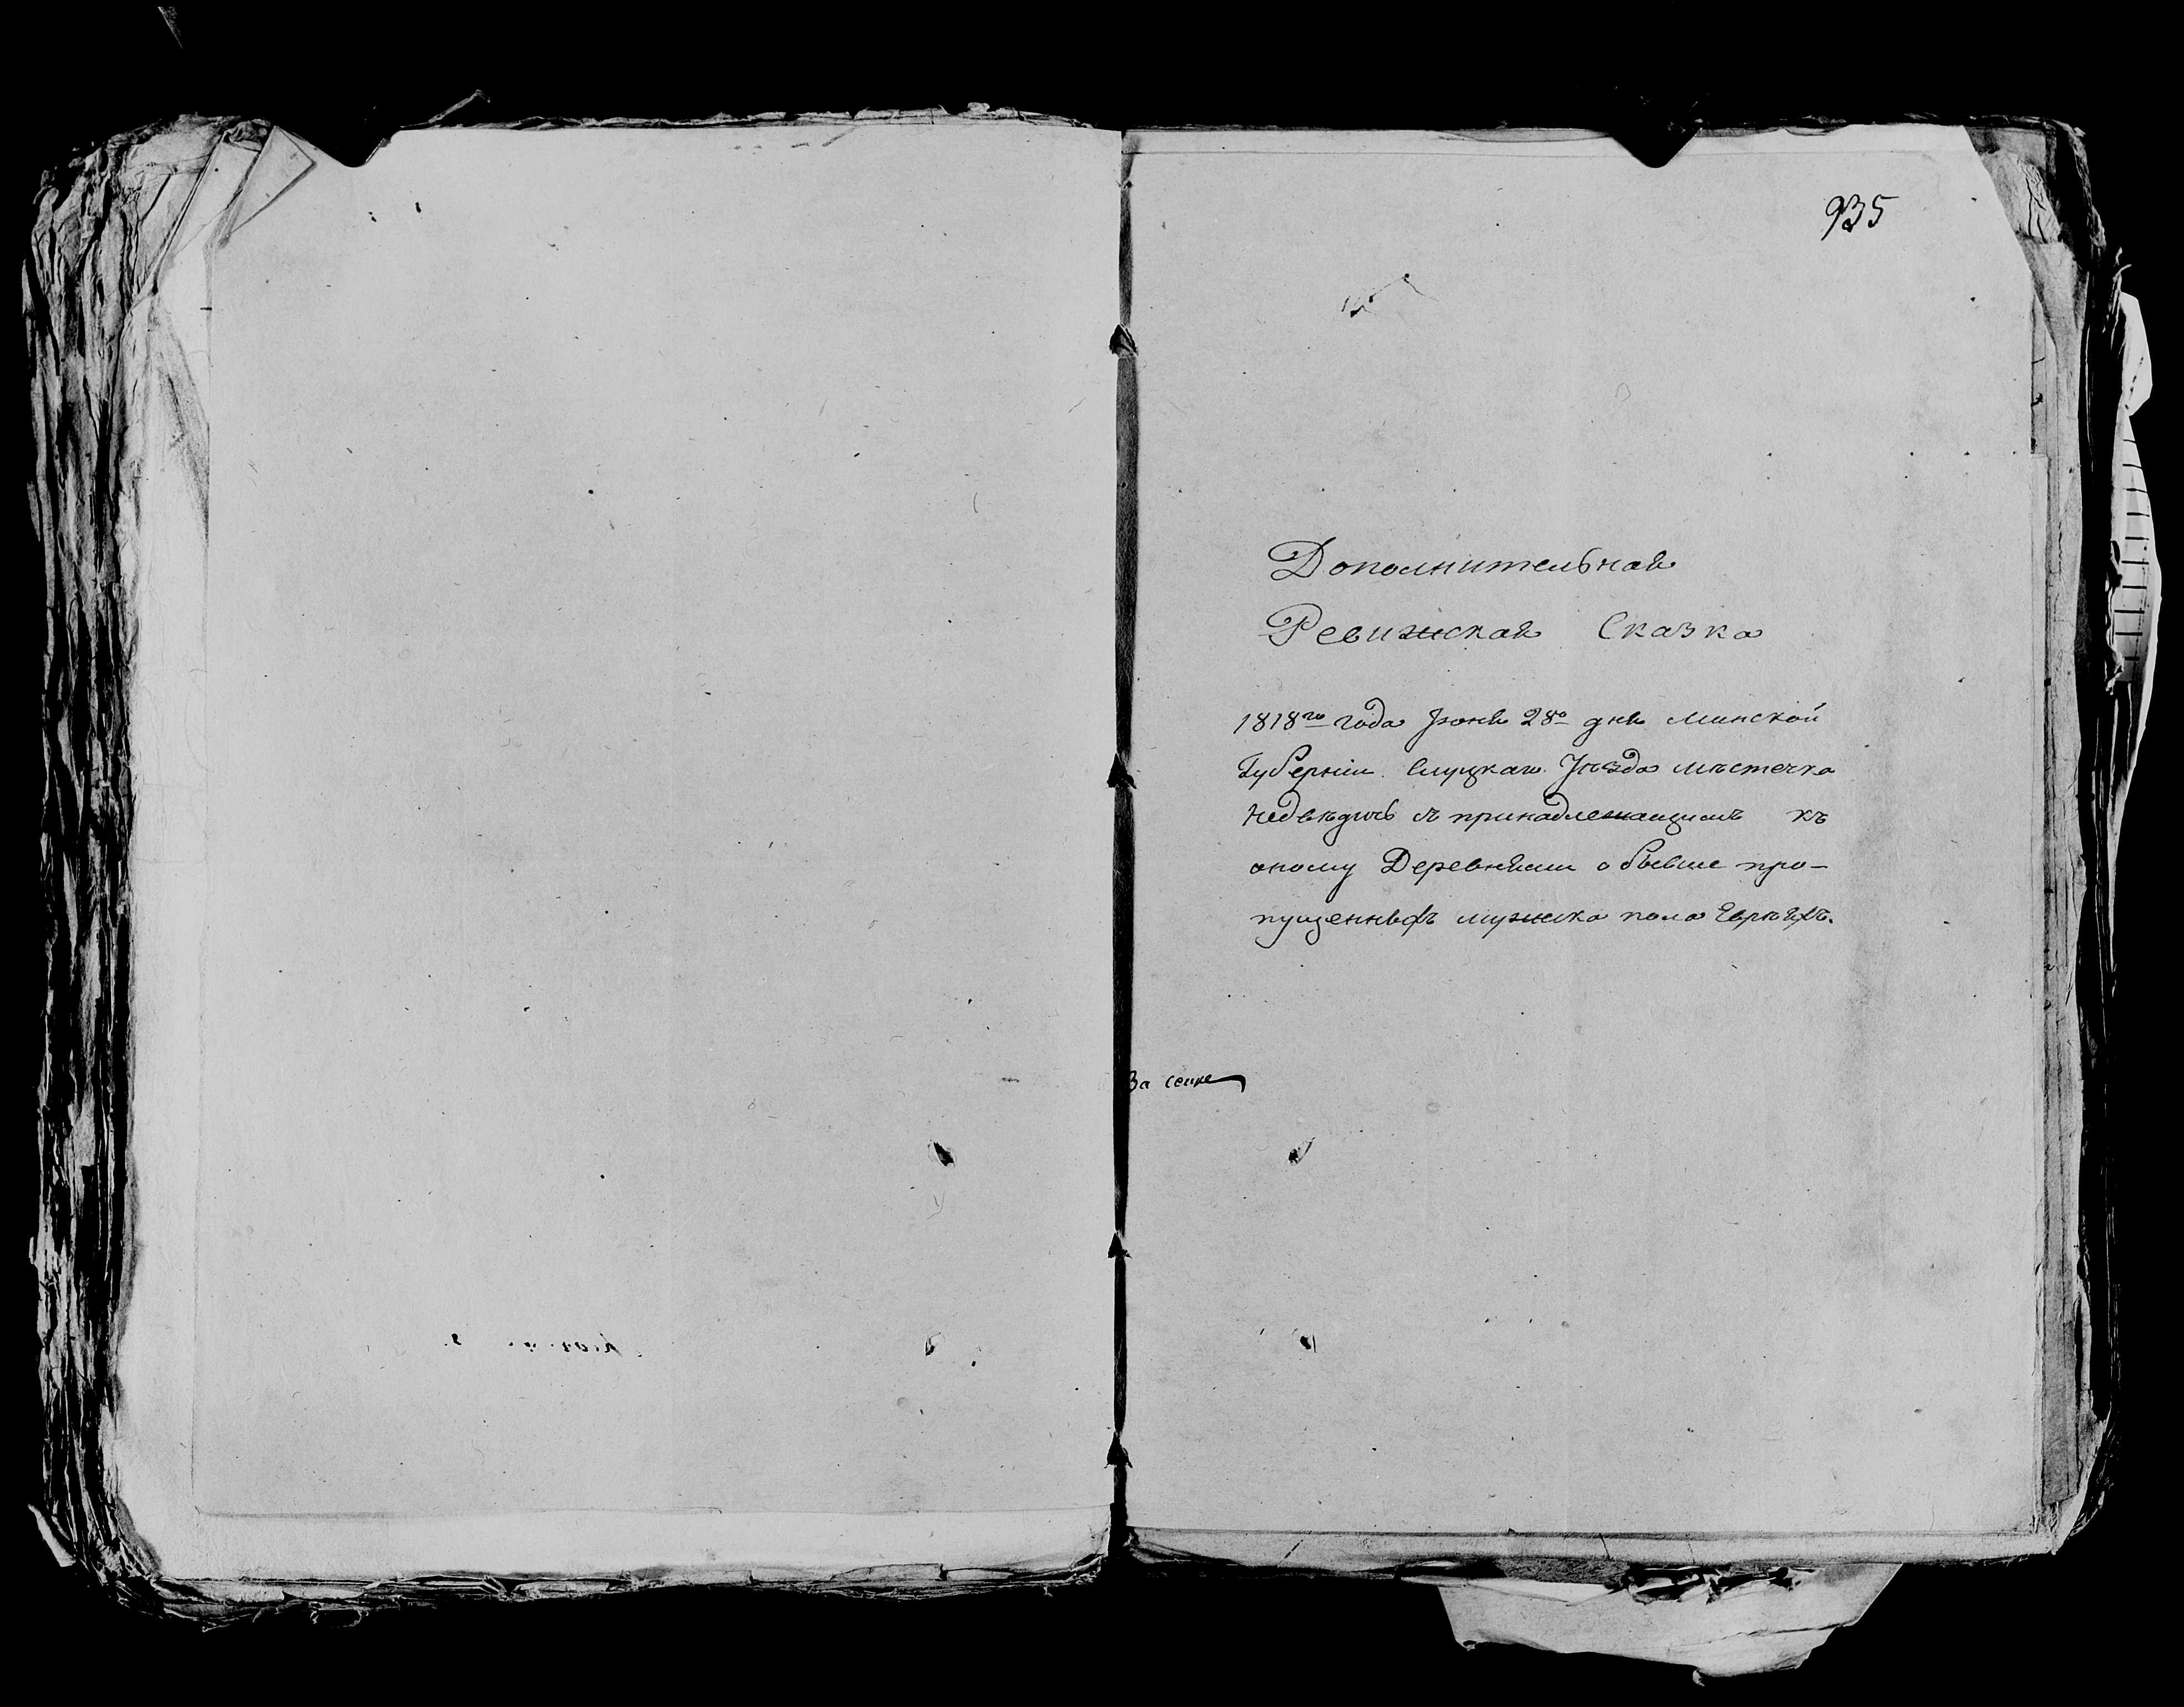 935
Дополнительная
Ревижская Сказка
1818го года Іюня 28го дня Минской
Губерніи Слуцкаго Уѣзда мѣстечка
Недвѣдичь съ принадлежащимъ къ
оному Деревнями о бывше про-
пущенныхъ мужска пола Евреяхъ.
За семже